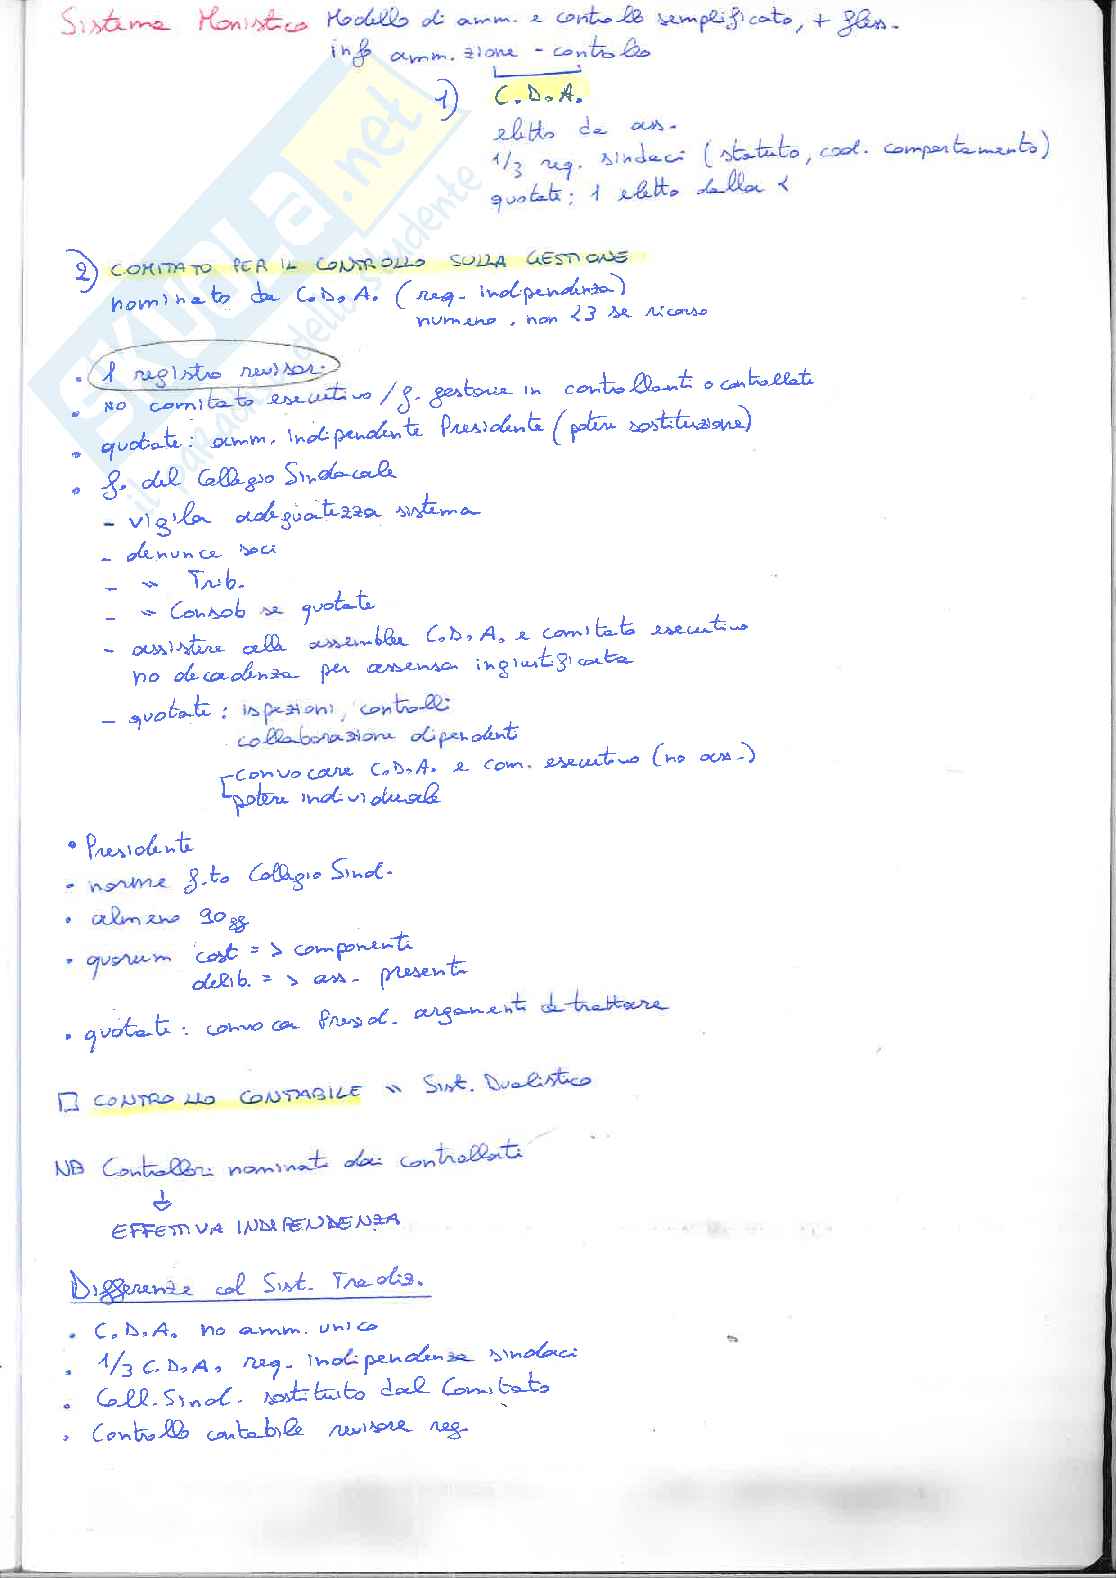 Sistema Monistico Modello di amm. e controllo semplificato, + fless.
info amm.zione - controllo
1) C.D.A.
eletto da ass.
1/3 req. sindaci (statuto, cod. comportamento)
quotate: 1 eletto dalla <
2) COMITATO PER IL CONTROLLO SULLA GESTIONE
nominato da C.D.A. (req. indipendenza)
numero, non <3 se ricorso
• 1 registro revisor.
• NO comitato esecutivo / f. gestorie in controllanti o controllate
• quotate: amm. indipendente Presidente (potere sostituzione)
• f. del Collegio Sindacale
- vigila adeguatezza sistema
- denunce soci
- " Trib.
- " Consob se quotate
- assistere alle assemblee C.D.A. e comitato esecutivo
no decadenza per assenza ingiustificata
- quotate: ispezioni, controlli
collaborazione dipendenti
convocare C.D.A. e com. esecutivo (no ass.)
potere individuale
• Presidente
• norme f.to Collegio Sind.
• almeno 90 gg
• quorum cost = > componenti
delib. = > ass. presenti
• quotate: convoca Presid. argomenti da trattare
□ CONTROLLO CONTABILE " Sist. Dualistico
NB Controllori nominati dai controllati
↓
EFFETTIVA INDIPENDENZA
Differenze col Sist. Tradiz.
• C.D.A. no amm. unico
• 1/3 C.D.A. req. indipendenza sindaci
• Coll. Sind. sostituito dal Comitato
• Controllo contabile revisore reg.
SKUOLA.net
il paradiso dello studente